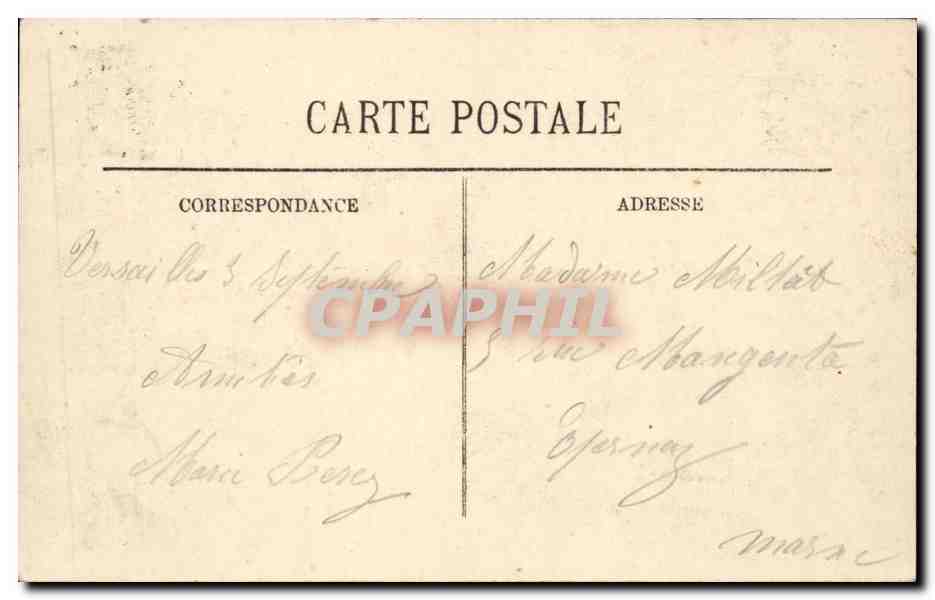 CARTE POSTALE
CORRESPONDANCE
Versailles 3 Septembre
Amitiés
Marie Perez
ADRESSE
Madame Miltat
3 rue Mangenta
Epernay
Marne
CPAPHIL